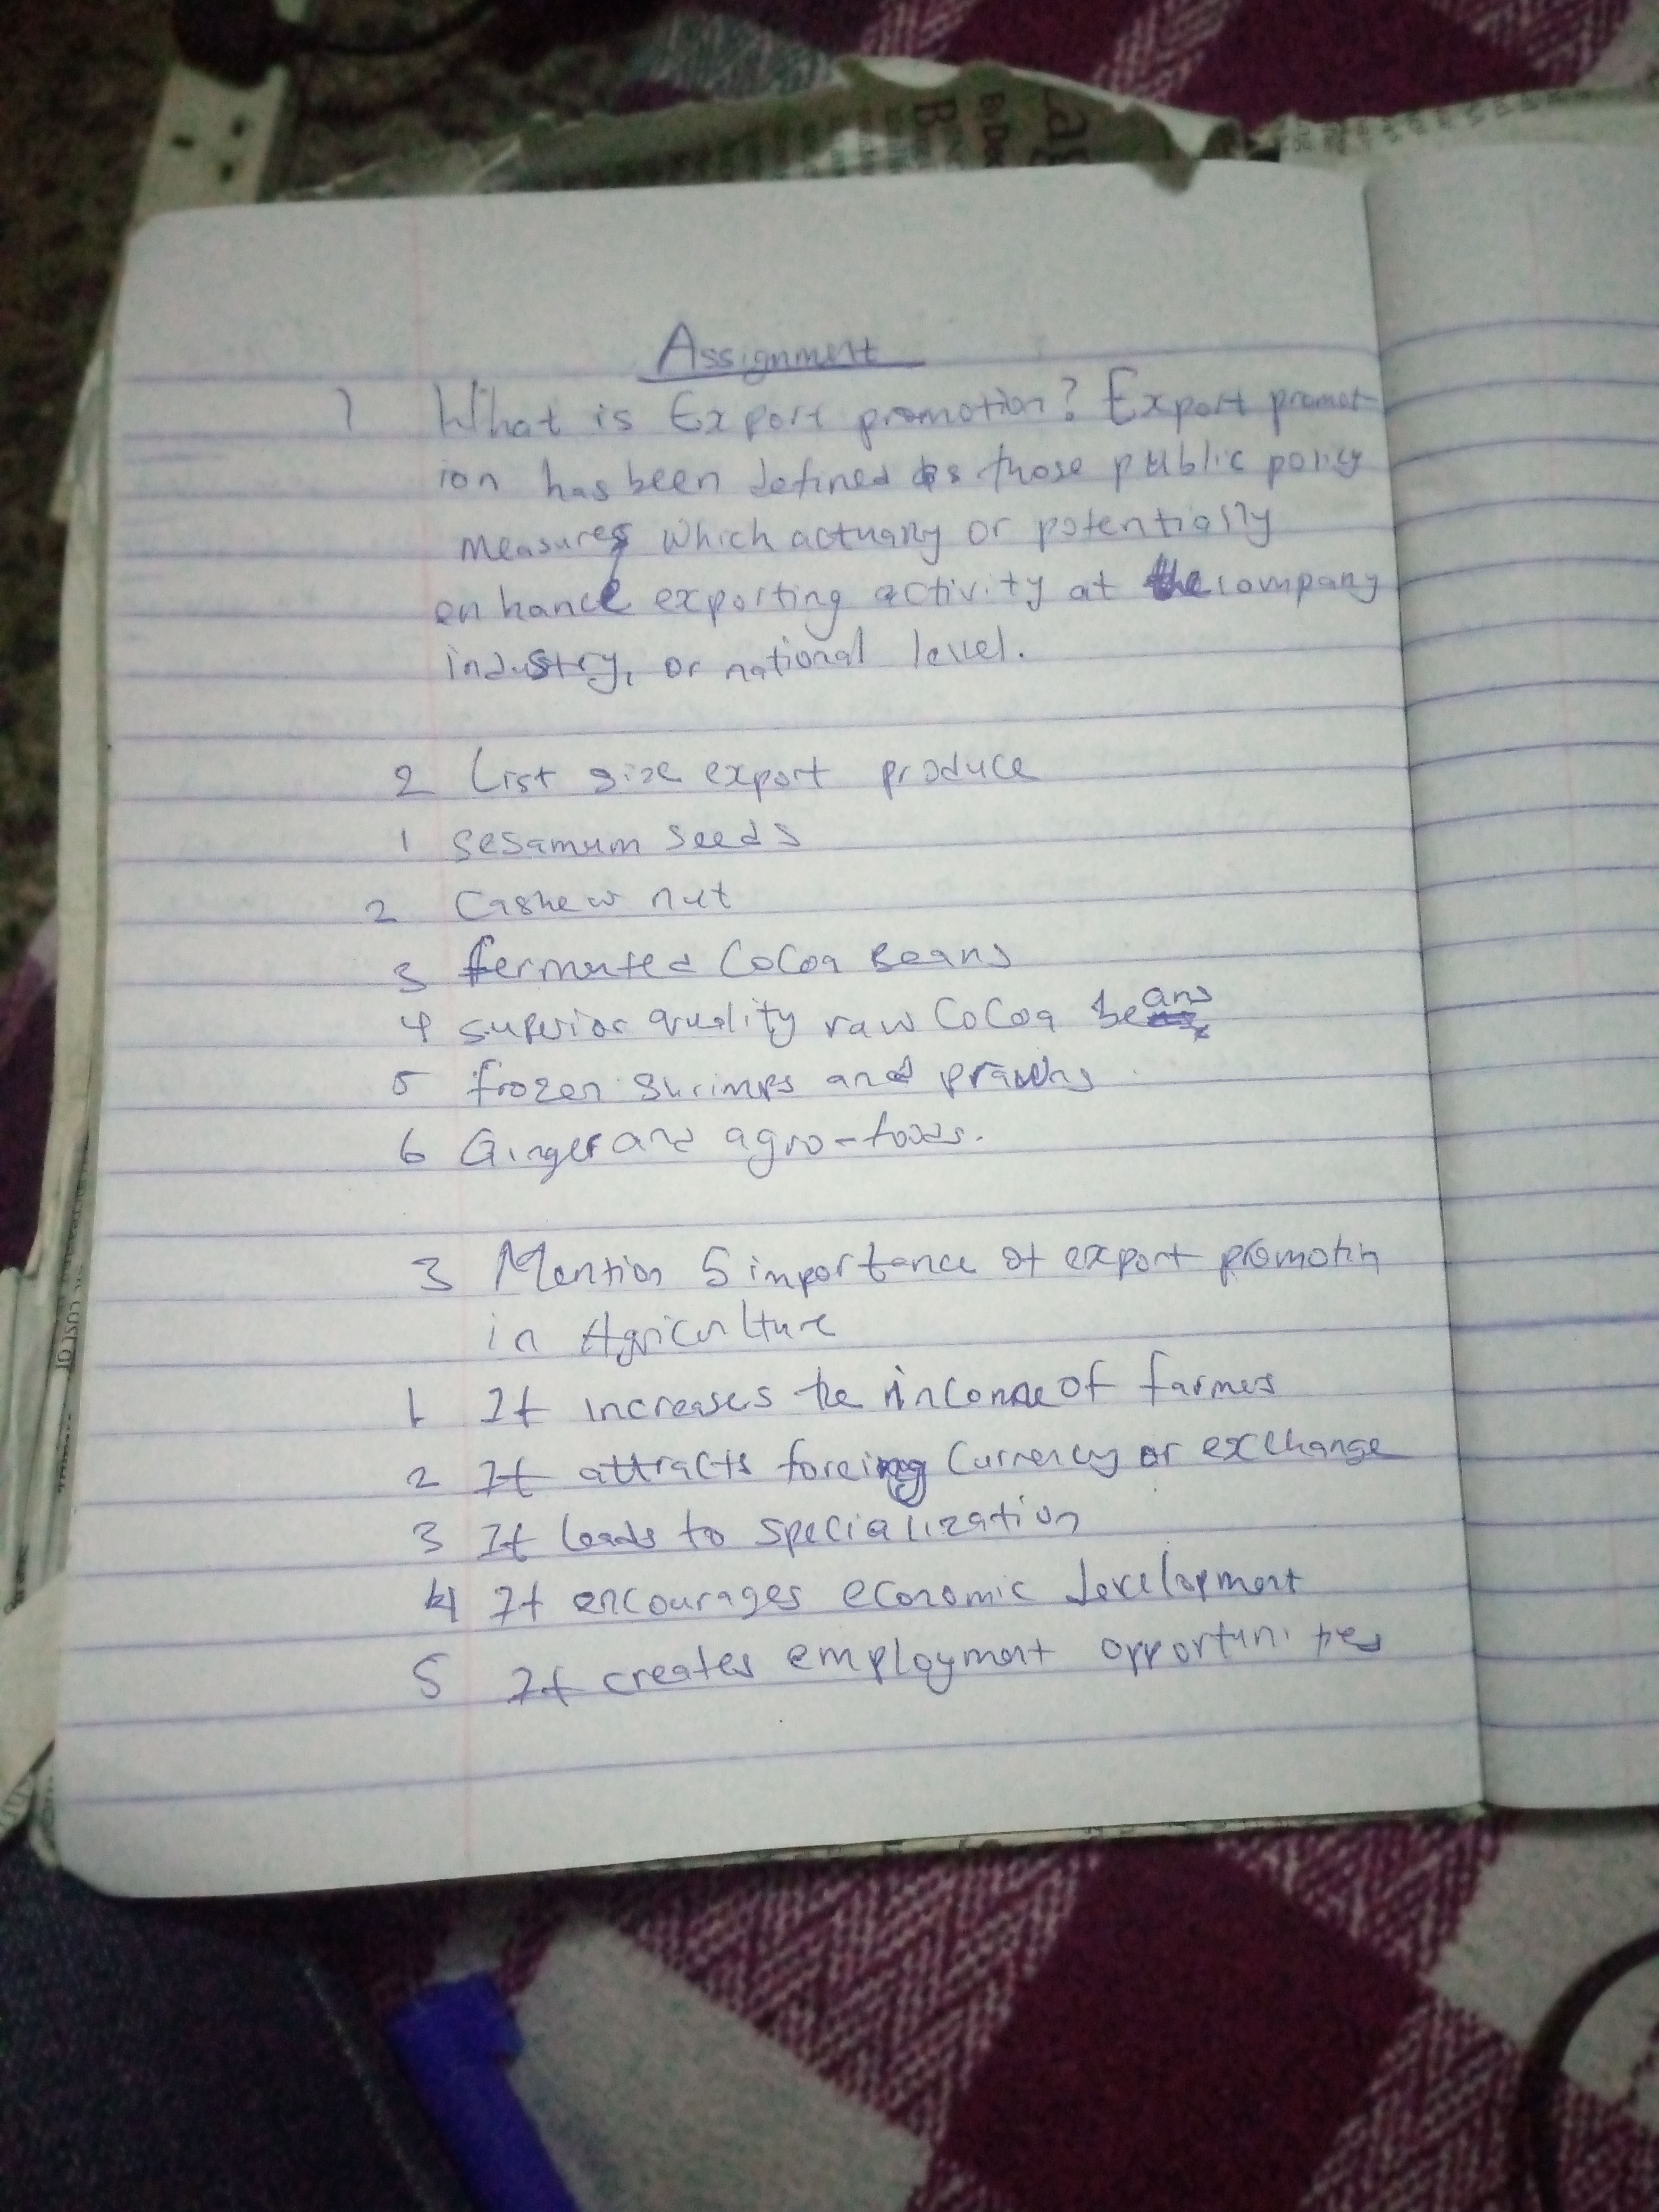 Assignment
1 What is Export promotion? Export promot-
ion has been defined as those public policy
measures which actually or potentially
enhance exporting activity at the company
industry, or national level.
2 List size export produce
1 Sesamum Seeds
2 Cashew nut
3 fermented Cocoa Beans
4 superior quality raw Cocoa beans
5 frozen shrimps and prawns
6 Ginger and agro-foods.
3 Mention 5 importance of export promotin
in Agriculture
1 It increases the income of farmes
2 It attracts foreing Currency or exchange
3 It leads to specialization
4 It encourages economic development
5 It creates employment opportunities